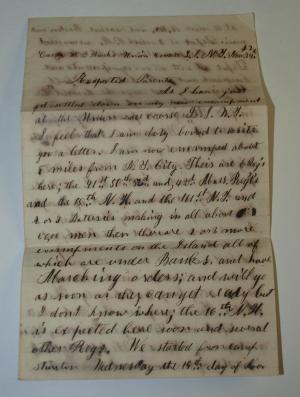 Camp N. P. Banks Union Course L.I. N.Y. Nov. 24
Respected Parents
As I have just
got settled down in my new encampment
at the Union race course L.I. N.Y.
I feel that I am duty bound to write
you a letter. I am now encamped about
8 miles from N.Y. City. Their are 6 Reg's
here; the 41st 50th 52nd and, 42d Mass. Reg's
and the 15th N.H. and the 161st N.Y. and
2 or 3 Batteries making in all about
men then there are 2 or 3 more
encampments on the Island all of
which are under Banks, and have
Marching orders; and will go
as soon as they can get ready but
I don't know where; the 16th N.H.
is expected here soon and several
other Regs. We started from camp
Wednesday the 19th day of Nov